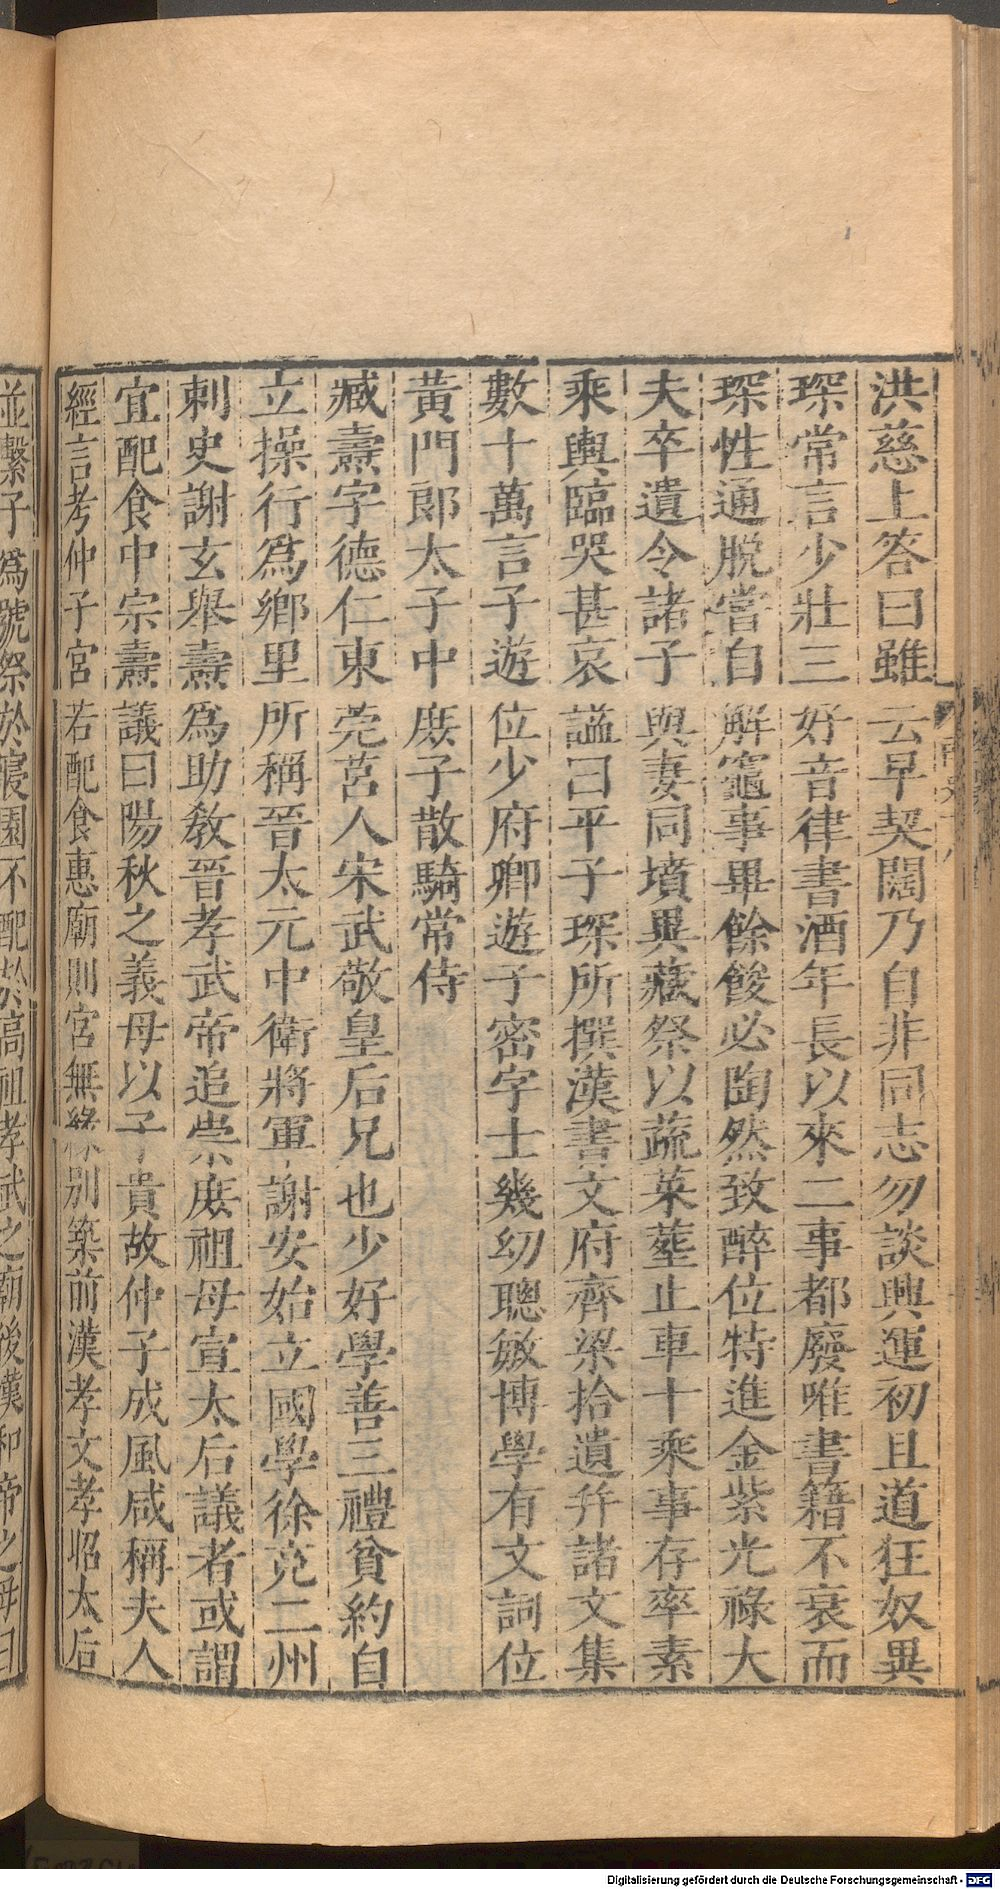 洪慈上答曰雖云早契闊乃自非同志勿談興運初且道狂奴異
琛常言少壯三好音律書酒年長以來二事都廢唯書籍不衰而
琛性通脫嘗自解竈事畢餘餕必陶然致醉位特進金紫光祿大
夫卒遺令諸子與妻同墳異藏祭以蔬菜葬止車十乘事存率素
乘輿臨哭甚哀諡曰平子琛所撰漢書文府齊梁拾遺幷諸文集
數十萬言子遊位少府卿遊子密字士幾幼聰敏博學有文詞位
黃門郎太子中庶子散騎常侍
臧燾字德仁東莞莒人宋武敬皇后兄也少好學善三禮貧約自
立操行爲鄉里所稱晉太元中衛將軍謝安始立國學徐兗二州
刺史謝玄舉燾爲助教晉孝武帝追崇庶祖母宣太后議者或謂
宜配食中宗燾議曰陽秋之義母以子貴故仲子成風咸稱夫人
經言考仲子宮若配食惠廟則宮無緣別築前漢孝文孝昭太后
並繫子爲號祭於寢園不配於高祖孝武之廟後漢和帝之母曰
Digitalisierung gefördert durch die Deutsche Forschungsgemeinschaft - DFG